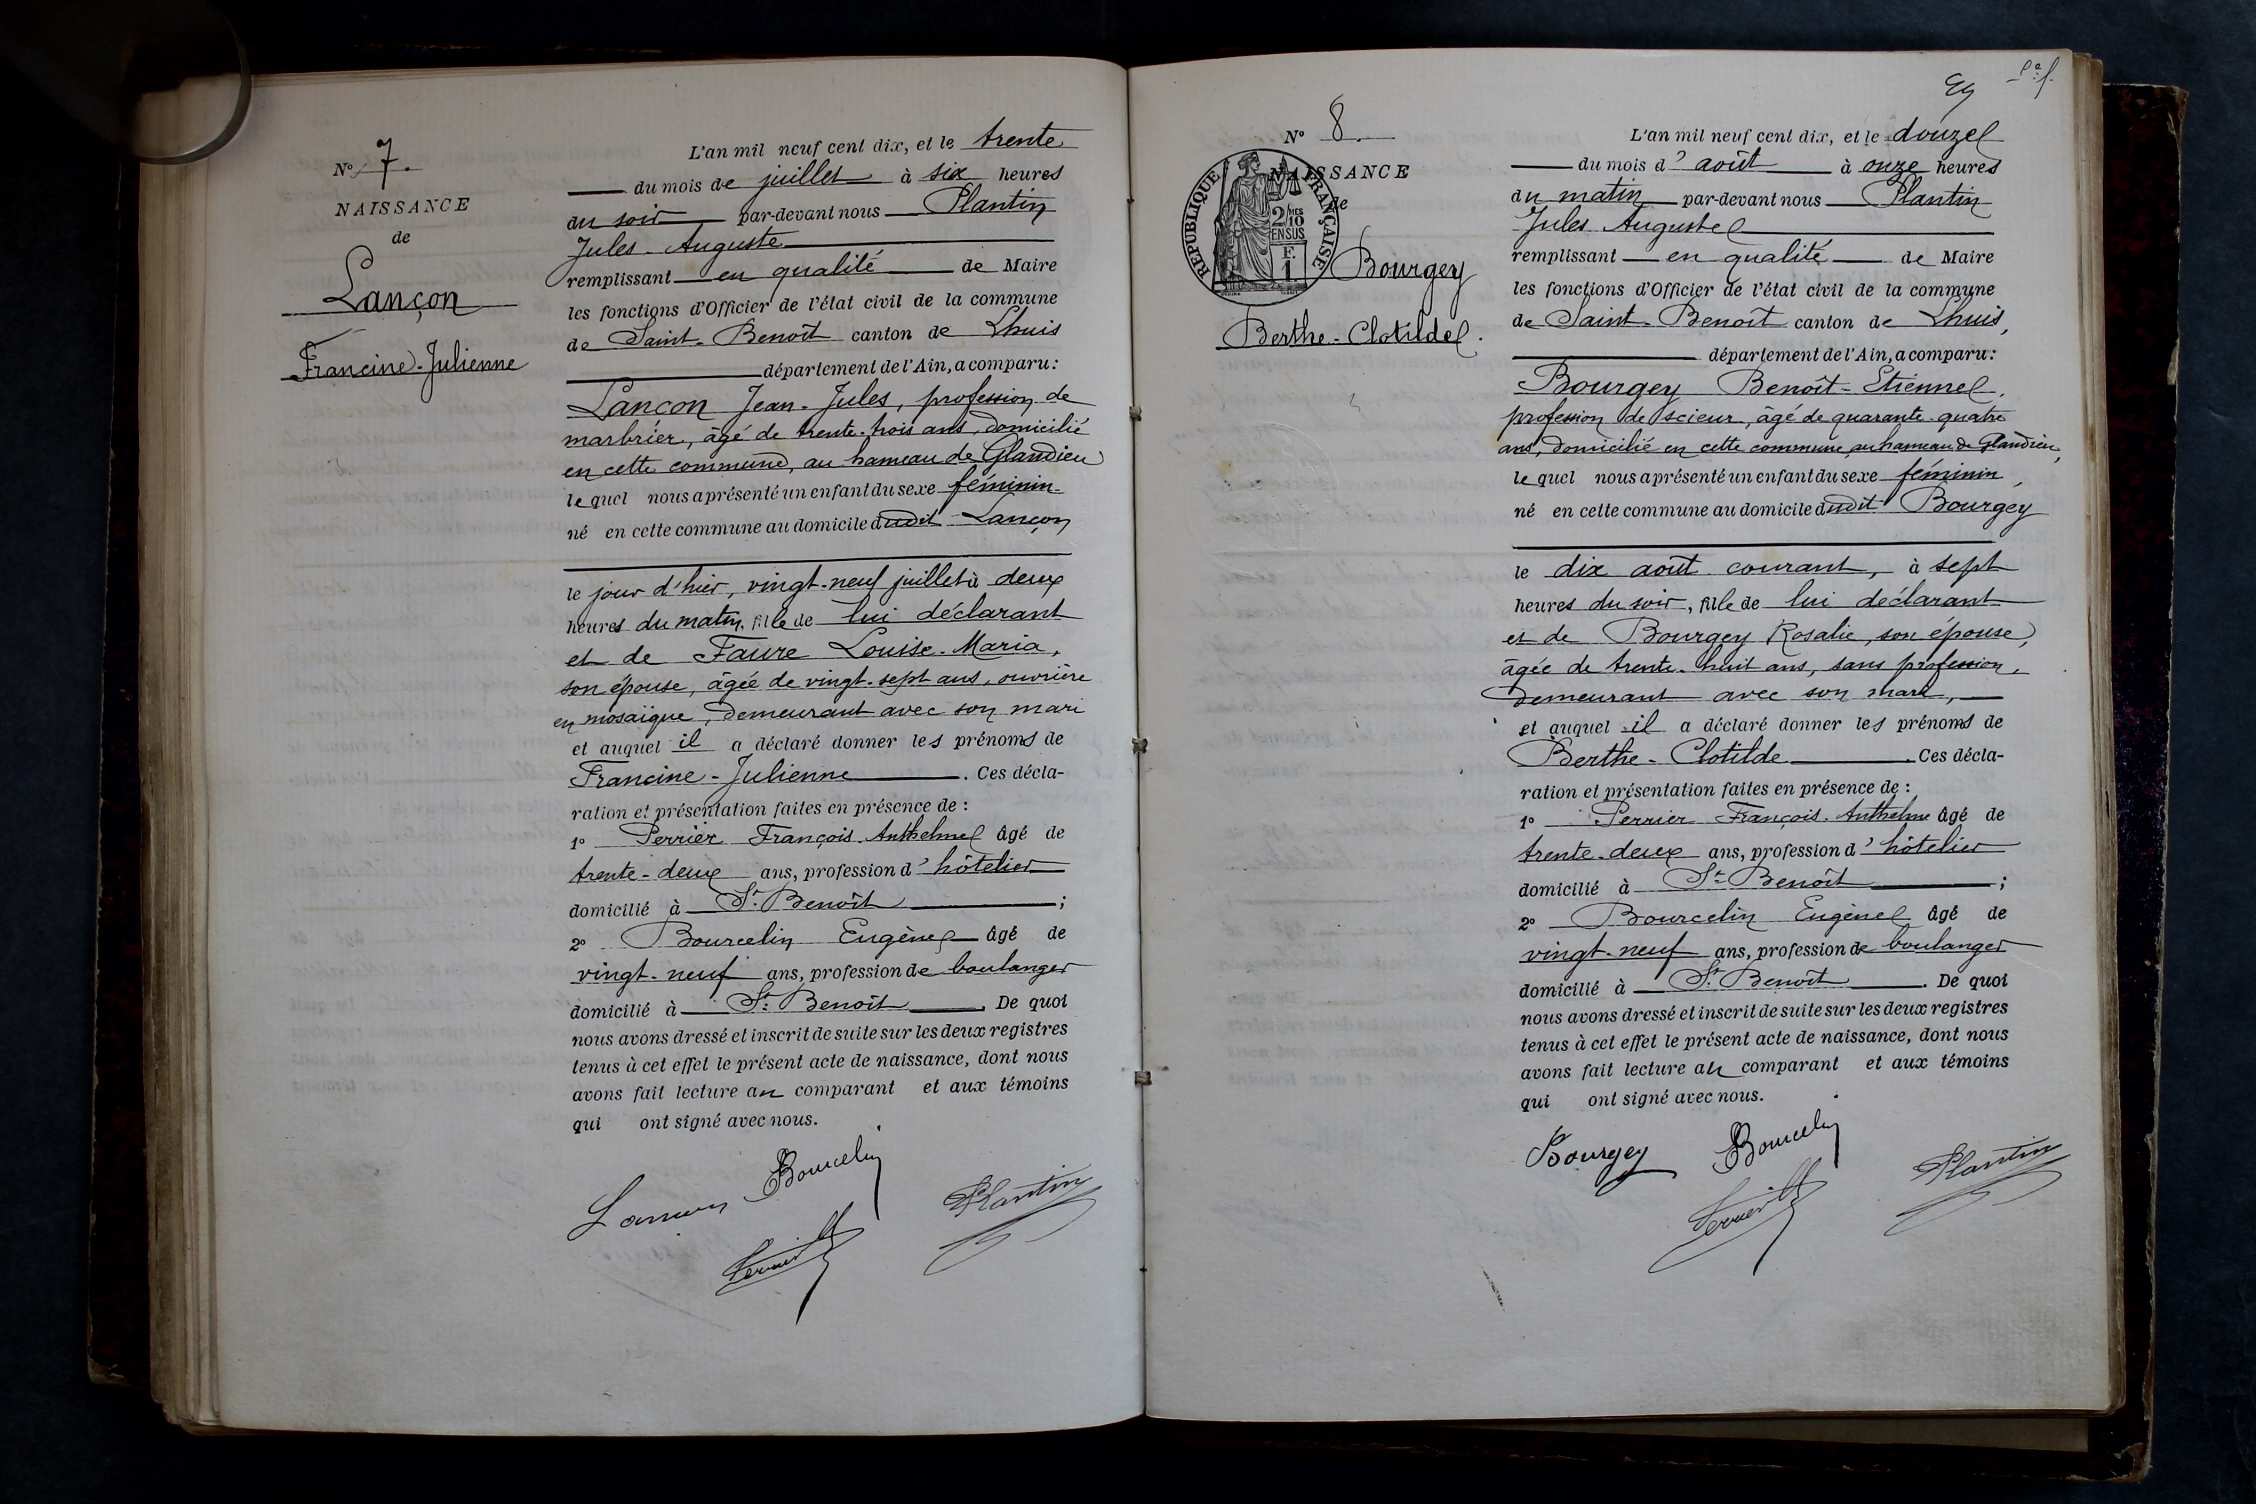 N° 7.
NAISSANCE
de
Lançon
Francine-Julienne
L'an mil neuf cent dix, et le trente
du mois de juillet à six heures
du soir par-devant nous Plantin
Jules-Auguste
remplissant en qualité de Maire
les fonctions d'Officier de l'état civil de la commune
de Saint-Benoît canton de Lhuis
département de l'Ain, a comparu:
Lançon Jean-Jules, profession de
marbrier, âgé de trente-trois ans, domicilié
en cette commune, au hameau de Glandieu
lequel nous a présenté un enfant du sexe féminin
né en cette commune au domicile dudit Lançon
le jour d'hier, vingt-neuf juillet à deux
heures du matin, fille de lui déclarant
et de Faure Louise-Maria,
son épouse, âgée de vingt-sept ans, ouvrière
en mosaïque, demeurant avec son mari
et auquel il a déclaré donner les prénoms de
Francine-Julienne. Ces décla-
ration et présentation faites en présence de :
1° Perrier François-Anthelme âgé de
trente-deux ans, profession d'hôtelier
domicilié à St. Benoît ;
2° Bourcelin Eugène âgé de
vingt-neuf ans, profession de boulanger
domicilié à St. Benoît. De quoi
nous avons dressé et inscrit de suite sur les deux registres
tenus à cet effet le présent acte de naissance, dont nous
avons fait lecture au comparant et aux témoins
qui ont signé avec nous.
Lançon Bourcelin Plantin
Perrier
N° 8.
NAISSANCE
de
RÉPUBLIQUE FRANÇAISE
2/10 MES
EN SUS
F.
1
Bourgey
Berthe-Clotilde.
L'an mil neuf cent dix, et le douze
du mois d'août à onze heures
du matin par-devant nous Plantin
Jules Auguste
remplissant en qualité de Maire
les fonctions d'Officier de l'état civil de la commune
de Saint-Benoît canton de Lhuis,
département de l'Ain, a comparu:
Bourgey Benoît-Etienne,
profession de scieur, âgé de quarante-quatre
ans, domicilié en cette commune, au hameau de Glandieu,
lequel nous a présenté un enfant du sexe féminin,
né en cette commune au domicile dudit Bourgey
le dix août courant, à sept
heures du soir, fille de lui déclarant
et de Bourgey Rosalie, son épouse,
âgée de trente-huit ans, sans profession,
demeurant avec son mari,
et auquel il a déclaré donner les prénoms de
Berthe-Clotilde. Ces décla-
ration et présentation faites en présence de :
1° Perrier François-Anthelme âgé de
trente-deux ans, profession d'hôtelier
domicilié à St. Benoît ;
2° Bourcelin Eugène âgé de
vingt-neuf ans, profession de boulanger
domicilié à St. Benoît. De quoi
nous avons dressé et inscrit de suite sur les deux registres
tenus à cet effet le présent acte de naissance, dont nous
avons fait lecture au comparant et aux témoins
qui ont signé avec nous.
Bourgey Bourcelin Plantin
Perrier